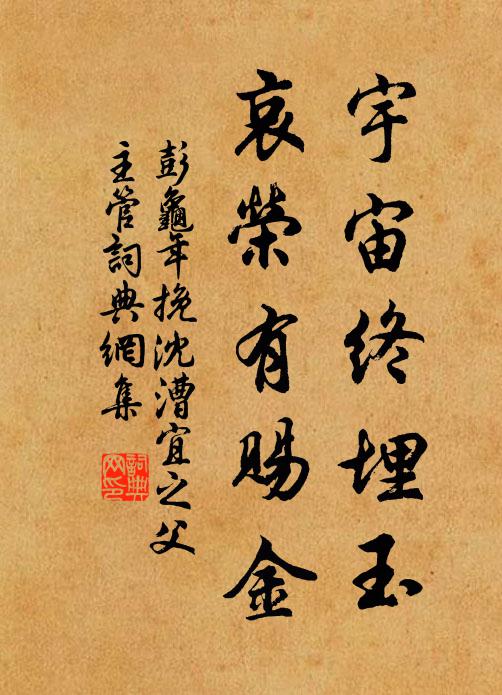 宇宙終埋玉
哀榮有賜金
彭龜年挽沈漕宜之父
主管詞典網集
詞典网印